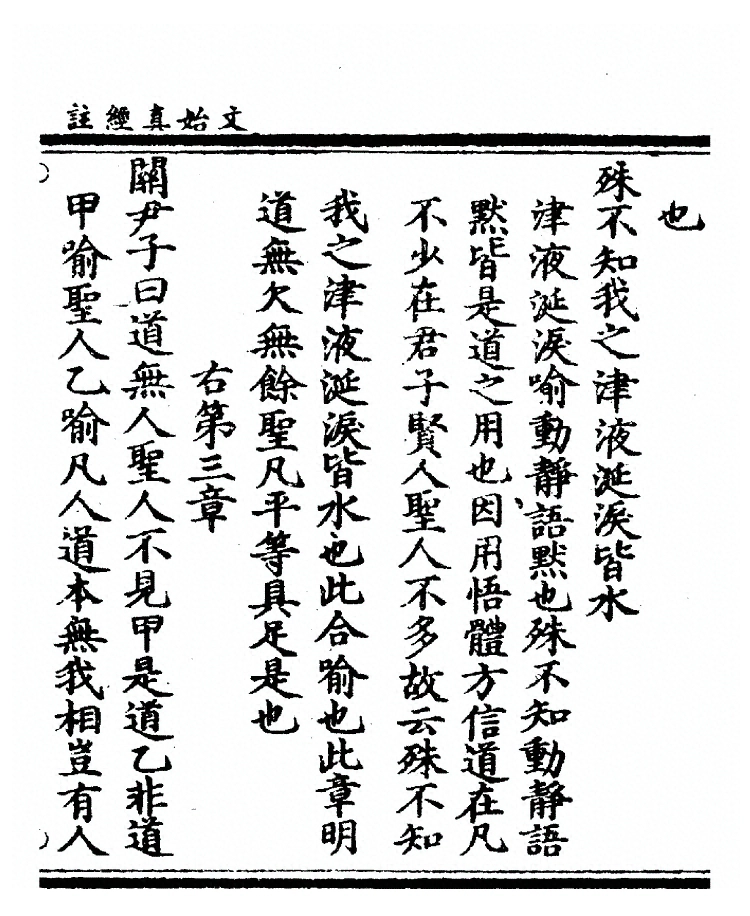 文始真經註
也
殊不知我之津液涎淚皆水
津液涎淚喻動靜語默也殊不知動靜語
默皆是道之用也因用悟體方信道在凡
不少在君子賢人聖人不多故云殊不知
我之津液涎淚皆水也此合喻也此章明
道無欠無餘聖凡平等具足是也
右第三章
關尹子曰道無人聖人不見甲是道乙非道
甲喻聖人乙喻凡人道本無我相豈有人